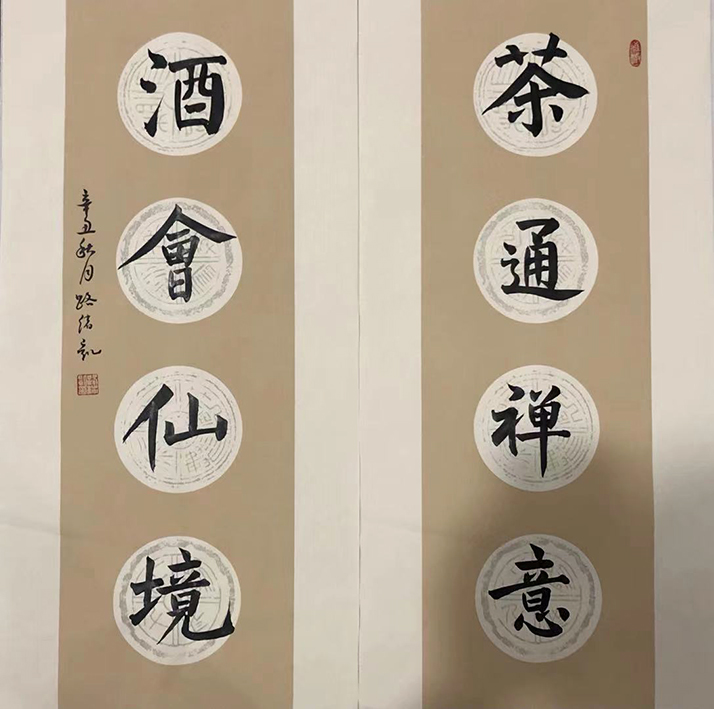 茶通禅意
酒會仙境
辛丑秋月路绪凯